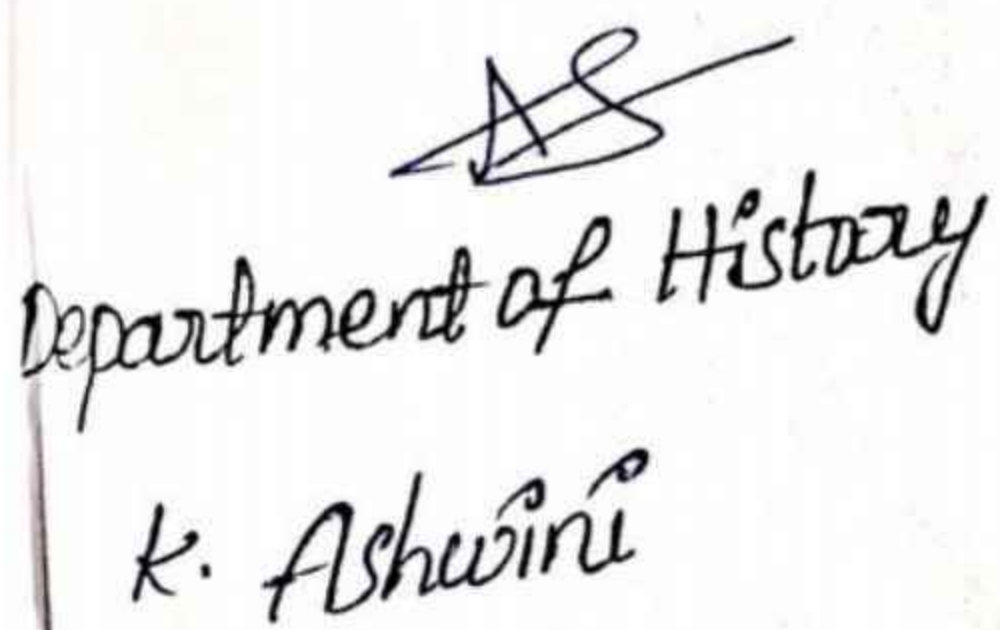 Department of History
K. Ashwini